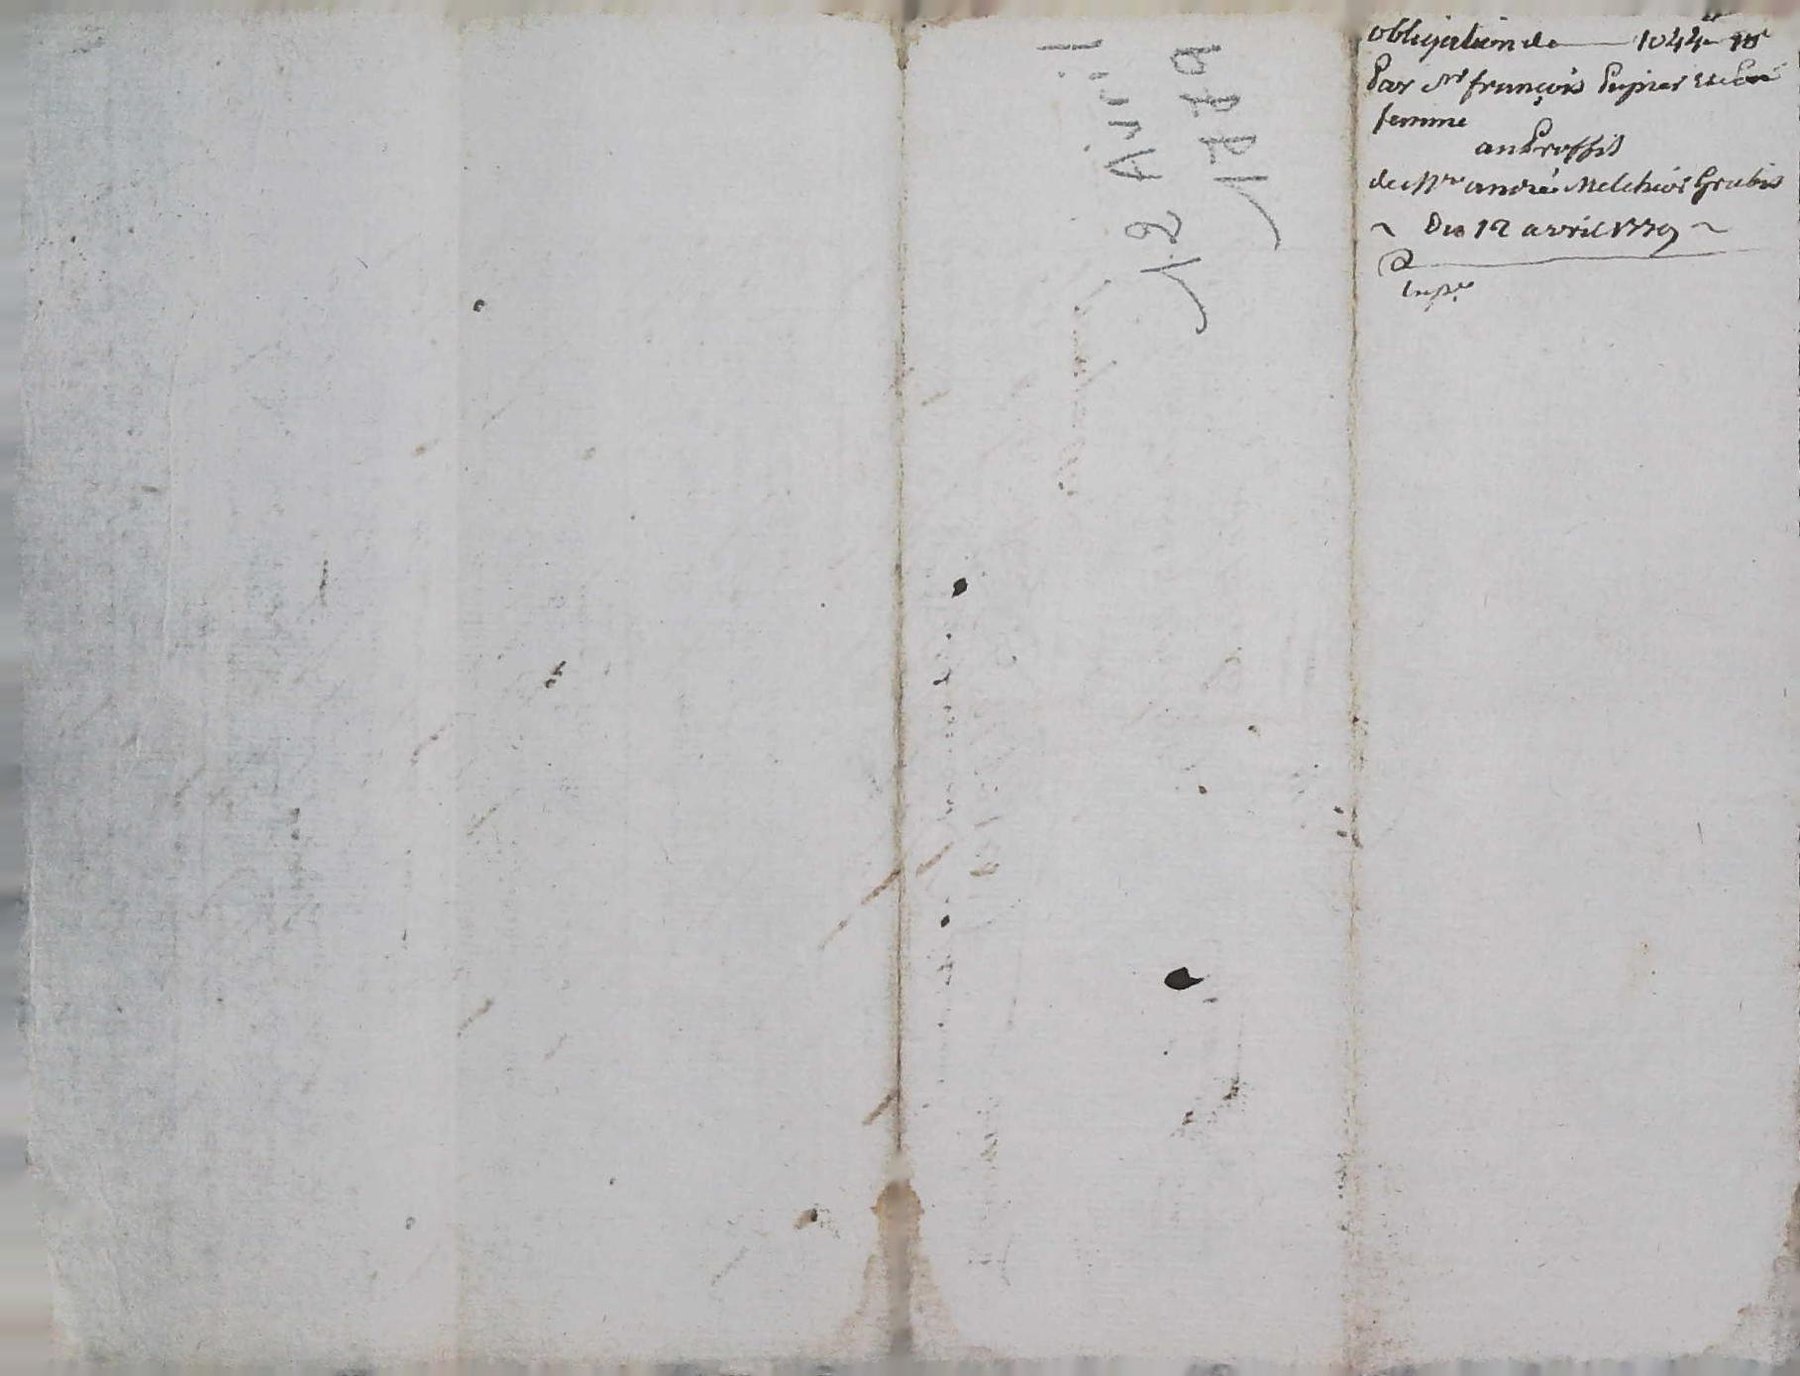 obligation de 1044 10s
Par Sr françois Pupier et sa
femme
au Proffit
de Mre andré Melchior Grubis
~ Du 12 avril 1779 ~
12 Avril
1779